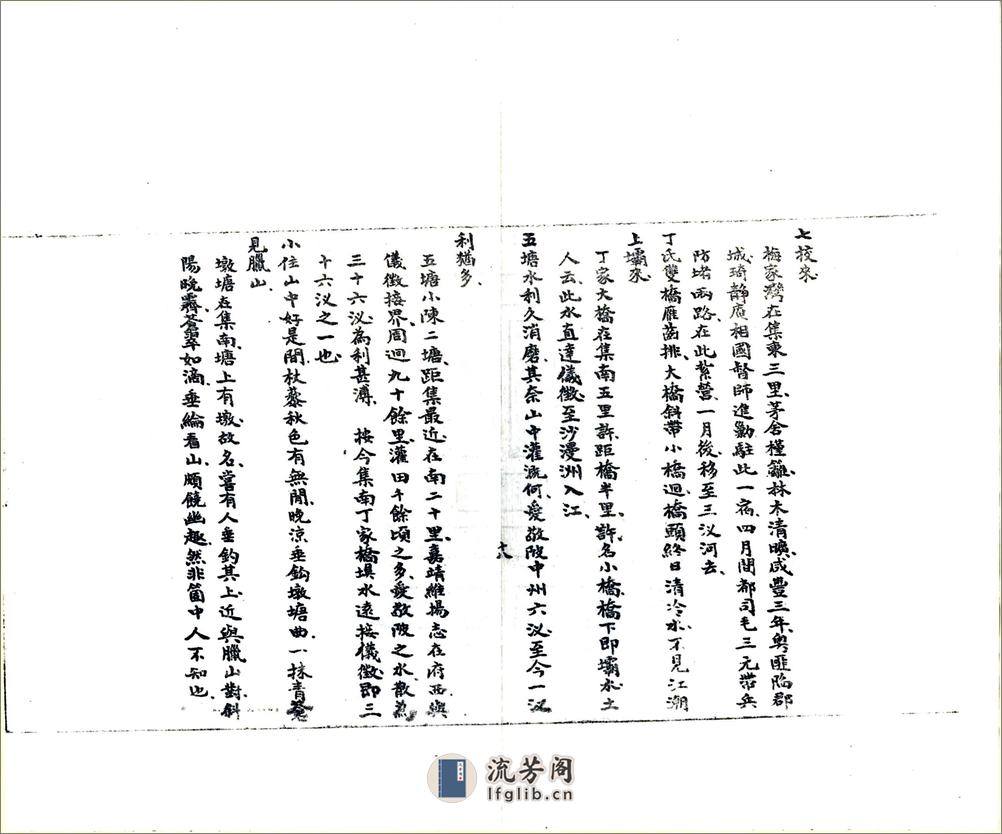 七校來
梅家灣在集東三里、茅舍槿籬、林木清曠、咸豐三年、粵匪陷郡
城、琦靜庵相國督師進勦、駐此一宿、四月間都司毛三元帶兵
防堵兩路、在此紮營、一月後移至三汊河去、
丁氏雙橋雁齒排、大橋斜帶小橋迴、橋頭終日清泠水、不見江潮
上壩來、
丁家大橋在集南五里許、距橋半里許、名小橋、橋下即壩水、土
人云、此水直達儀徵、至沙漫洲入江、
五塘水利久消磨、其奈山中灌溉何、愛敬陂中州六汊、至今一汊
利猶多、
五塘小陳二塘、距集最近、在南二十里、嘉靖維揚志、在府西與
儀徵接界、周迴九十餘里、灌田千餘頃之多、愛敬陂之水、散為
三十六汊、為利甚溥、 按今集南丁家橋壩水、遠接儀徵、即三
十六汊之一也、
小住山中好是閒、杖藜秋色有無間、晚涼垂釣墩塘曲、一抹青蒼
見臘山、
墩塘在集南、塘上有墩、故名、嘗有人垂釣其上、近與臘山對、斜
陽晚霽、蒼翠如滴、垂綸看山、頗饒幽趣、然非箇中人不知也、
十八
流芳阁
lfglib.cn